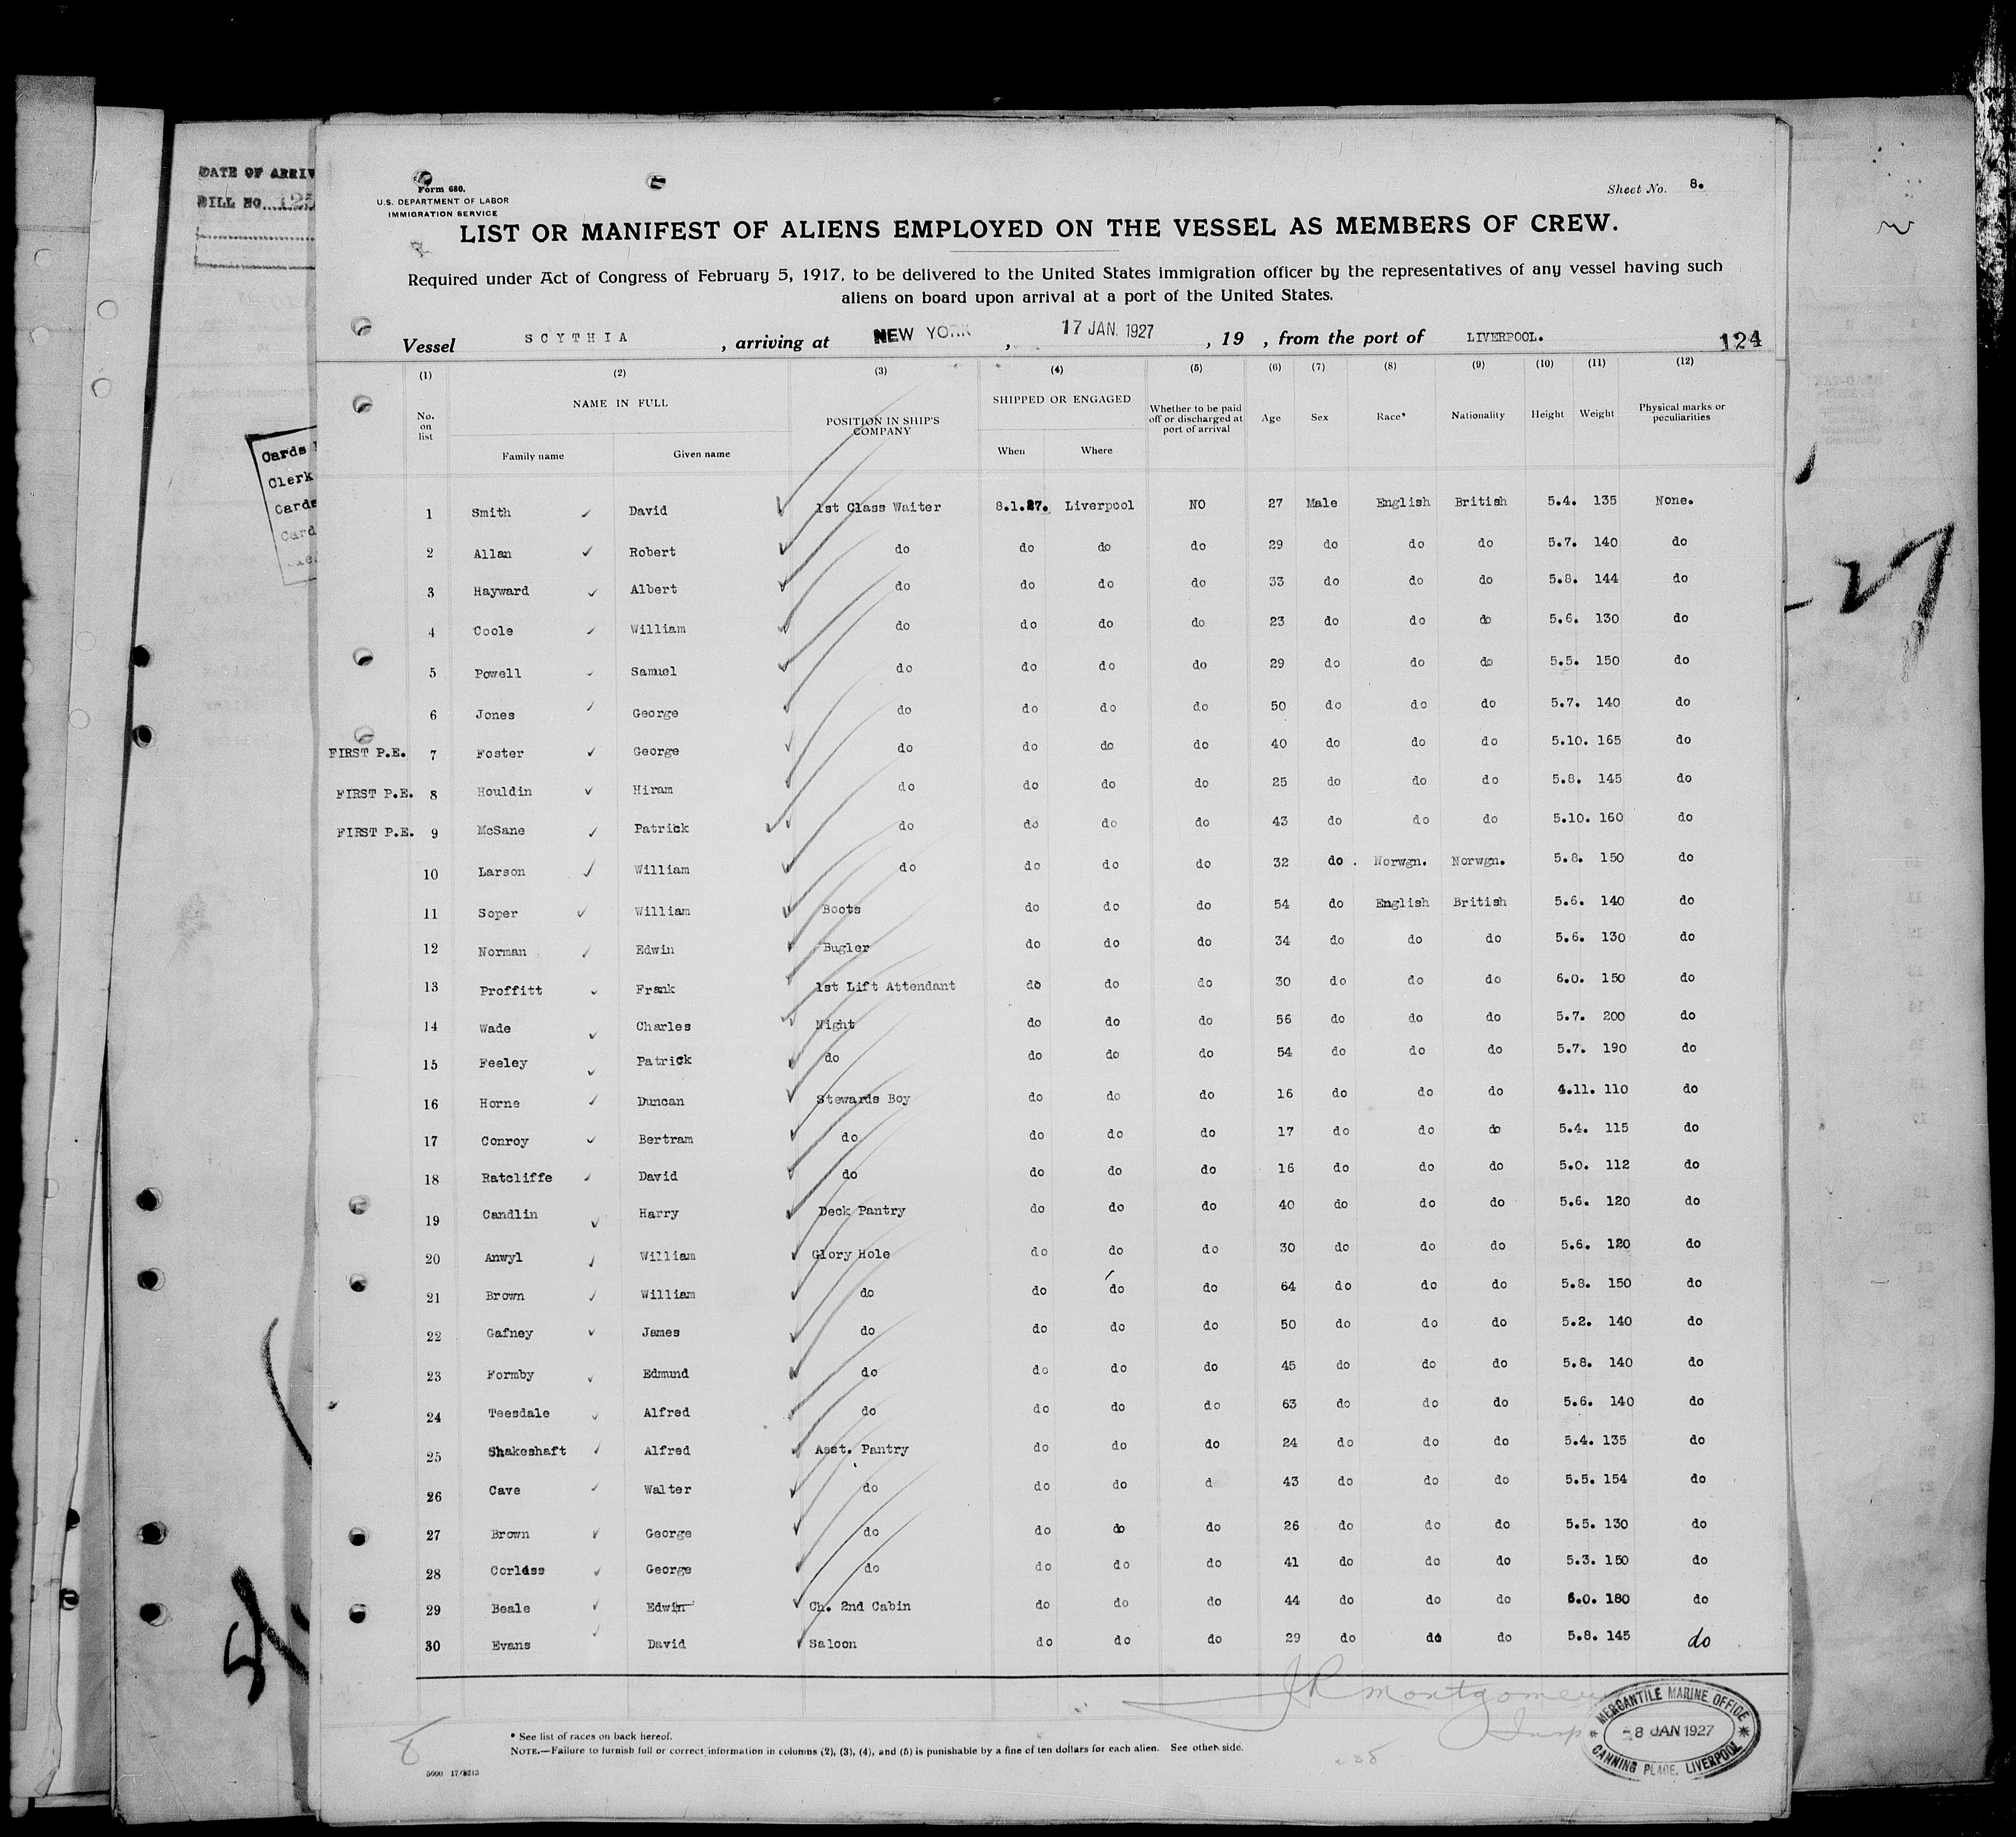 DATE OF ARRIV
BILL NO. 125
Cards
Clerk
Cards
Card
Form 680.
U.S. DEPARTMENT OF LABOR
IMMIGRATION SERVICE
Sheet No. 8.
LIST OR MANIFEST OF ALIENS EMPLOYED ON THE VESSEL AS MEMBERS OF CREW.
Required under Act of Congress of February 5, 1917, to be delivered to the United States immigration officer by the representatives of any vessel having such
aliens on board upon arrival at a port of the United States.
Vessel SCYTHIA , arriving at NEW YORK , 17 JAN. 1927 , 19 , from the port of LIVERPOOL. 124
(1) (2) (3) (4) (5) (6) (7) (8) (9) (10) (11) (12)
No. on list NAME IN FULL Family name Given name POSITION IN SHIP'S COMPANY SHIPPED OR ENGAGED When Where Whether to be paid off or discharged at port of arrival Age Sex Race* Nationality Height Weight Physical marks or peculiarities
1 Smith David 1st Class Waiter 8.1.27. Liverpool NO 27 Male English British 5.4. 135 None.
2 Allan Robert do do do do 29 do do do 5.7. 140 do
3 Hayward Albert do do do do 33 do do do 5.8. 144 do
4 Coole William do do do do 23 do do do 5.6. 130 do
5 Powell Samuel do do do do 29 do do do 5.5. 150 do
6 Jones George do do do do 50 do do do 5.7. 140 do
FIRST P.E. 7 Foster George do do do do 40 do do do 5.10. 165 do
FIRST P.E. 8 Houldin Hiram do do do do 25 do do do 5.8. 145 do
FIRST P.E. 9 McSane Patrick do do do do 43 do do do 5.10. 160 do
10 Larson William do do do do 32 do . Norwgn. Norwgn. 5.8. 150 do
11 Soper William Boots do do do 54 do English British 5.6. 140 do
12 Norman Edwin Bugler do do do 34 do do do 5.6. 130 do
13 Proffitt Frank 1st Lift Attendant do do do 30 do do do 6.0. 150 do
14 Wade Charles Night do do do 56 do do do 5.7. 200 do
15 Feeley Patrick do do do do 54 do do do 5.7. 190 do
16 Horne Duncan Stewards Boy do do do 16 do do do 4.11. 110 do
17 Conroy Bertram do do do do 17 do do do 5.4. 115 do
18 Ratcliffe David do do do do 16 do do do 5.0. 112 do
19 Candlin Harry Deck Pantry do do do 40 do do do 5.6. 120 do
20 Anwyl William Glory Hole do do do 30 do do do 5.6. 120 do
21 Brown William do do do do 64 do do do 5.8. 150 do
22 Gafney James do do do do 50 do do do 5.2. 140 do
23 Formby Edmund do do do do 45 do do do 5.8. 140 do
24 Teesdale Alfred do do do do 63 do do do 5.6. 140 do
25 Shakeshaft Alfred Asst. Pantry do do do 24 do do do 5.4. 135 do
26 Cave Walter do do do d 43 do do do 5.5. 154 do
27 Brown George do do do do 26 do do do 5.5. 130 do
28 Corless George do do do do 41 do do do 5.3. 150 do
29 Beale Edwin Ch. 2nd Cabin do do do 44 do do do 6.0. 180 do
30 Evans David Saloon do do do 29 do do do 5.8. 145 do
J R Montgomery
Insp
MERCANTILE MARINE OFFICE
8 JAN 1927
CANNING PLACE, LIVERPOOL
8
* See list of races on back hereof.
NOTE.—Failure to furnish full or correct information in columns (2), (3), (4), and (5) is punishable by a fine of ten dollars for each alien. See other side.
27